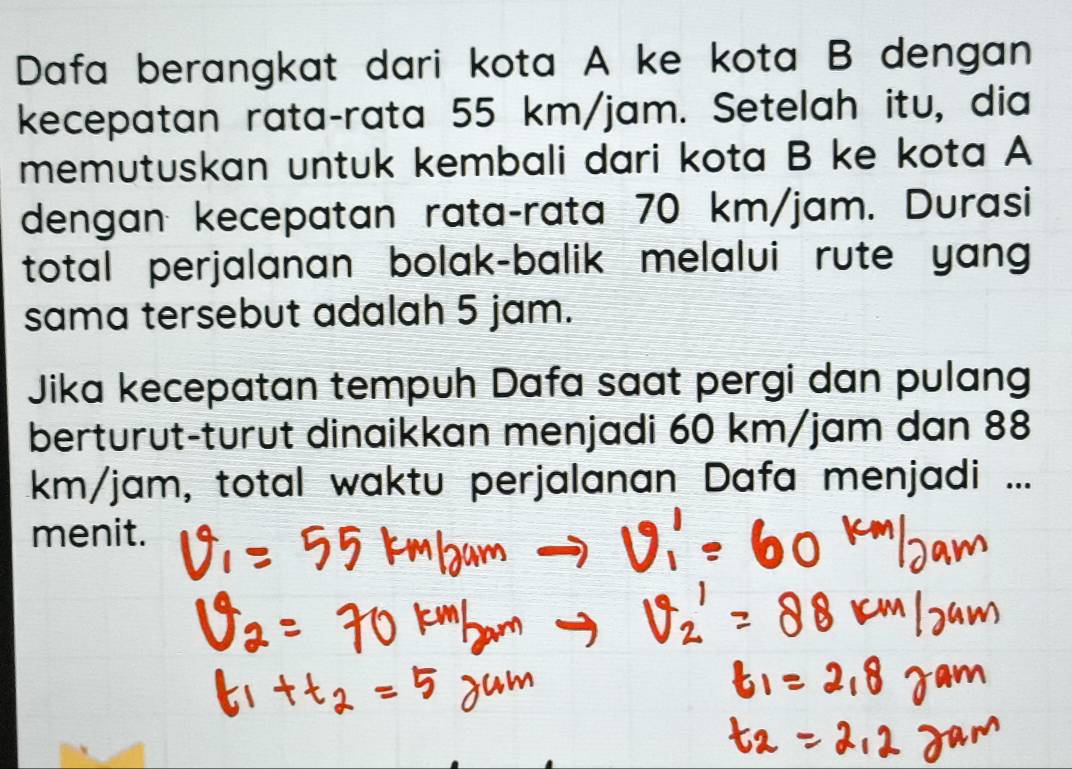 Dafa berangkat dari kota A ke kota B dengan
kecepatan rata-rata 55 km/jam. Setelah itu, dia
memutuskan untuk kembali dari kota B ke kota A
dengan kecepatan rata-rata 70 km/jam. Durasi
total perjalanan bolak-balik melalui rute yang
sama tersebut adalah 5 jam.
Jika kecepatan tempuh Dafa saat pergi dan pulang
berturut-turut dinaikkan menjadi 60 km/jam dan 88
km/jam, total waktu perjalanan Dafa menjadi ...
menit.
v₁ = 55 km/jam → v₁' = 60 km/jam
v₂ = 70 km/jam → v₂' = 88 km/jam
t₁ + t₂ = 5 jam
t₁ = 2,8 jam
t₂ = 2,2 jam